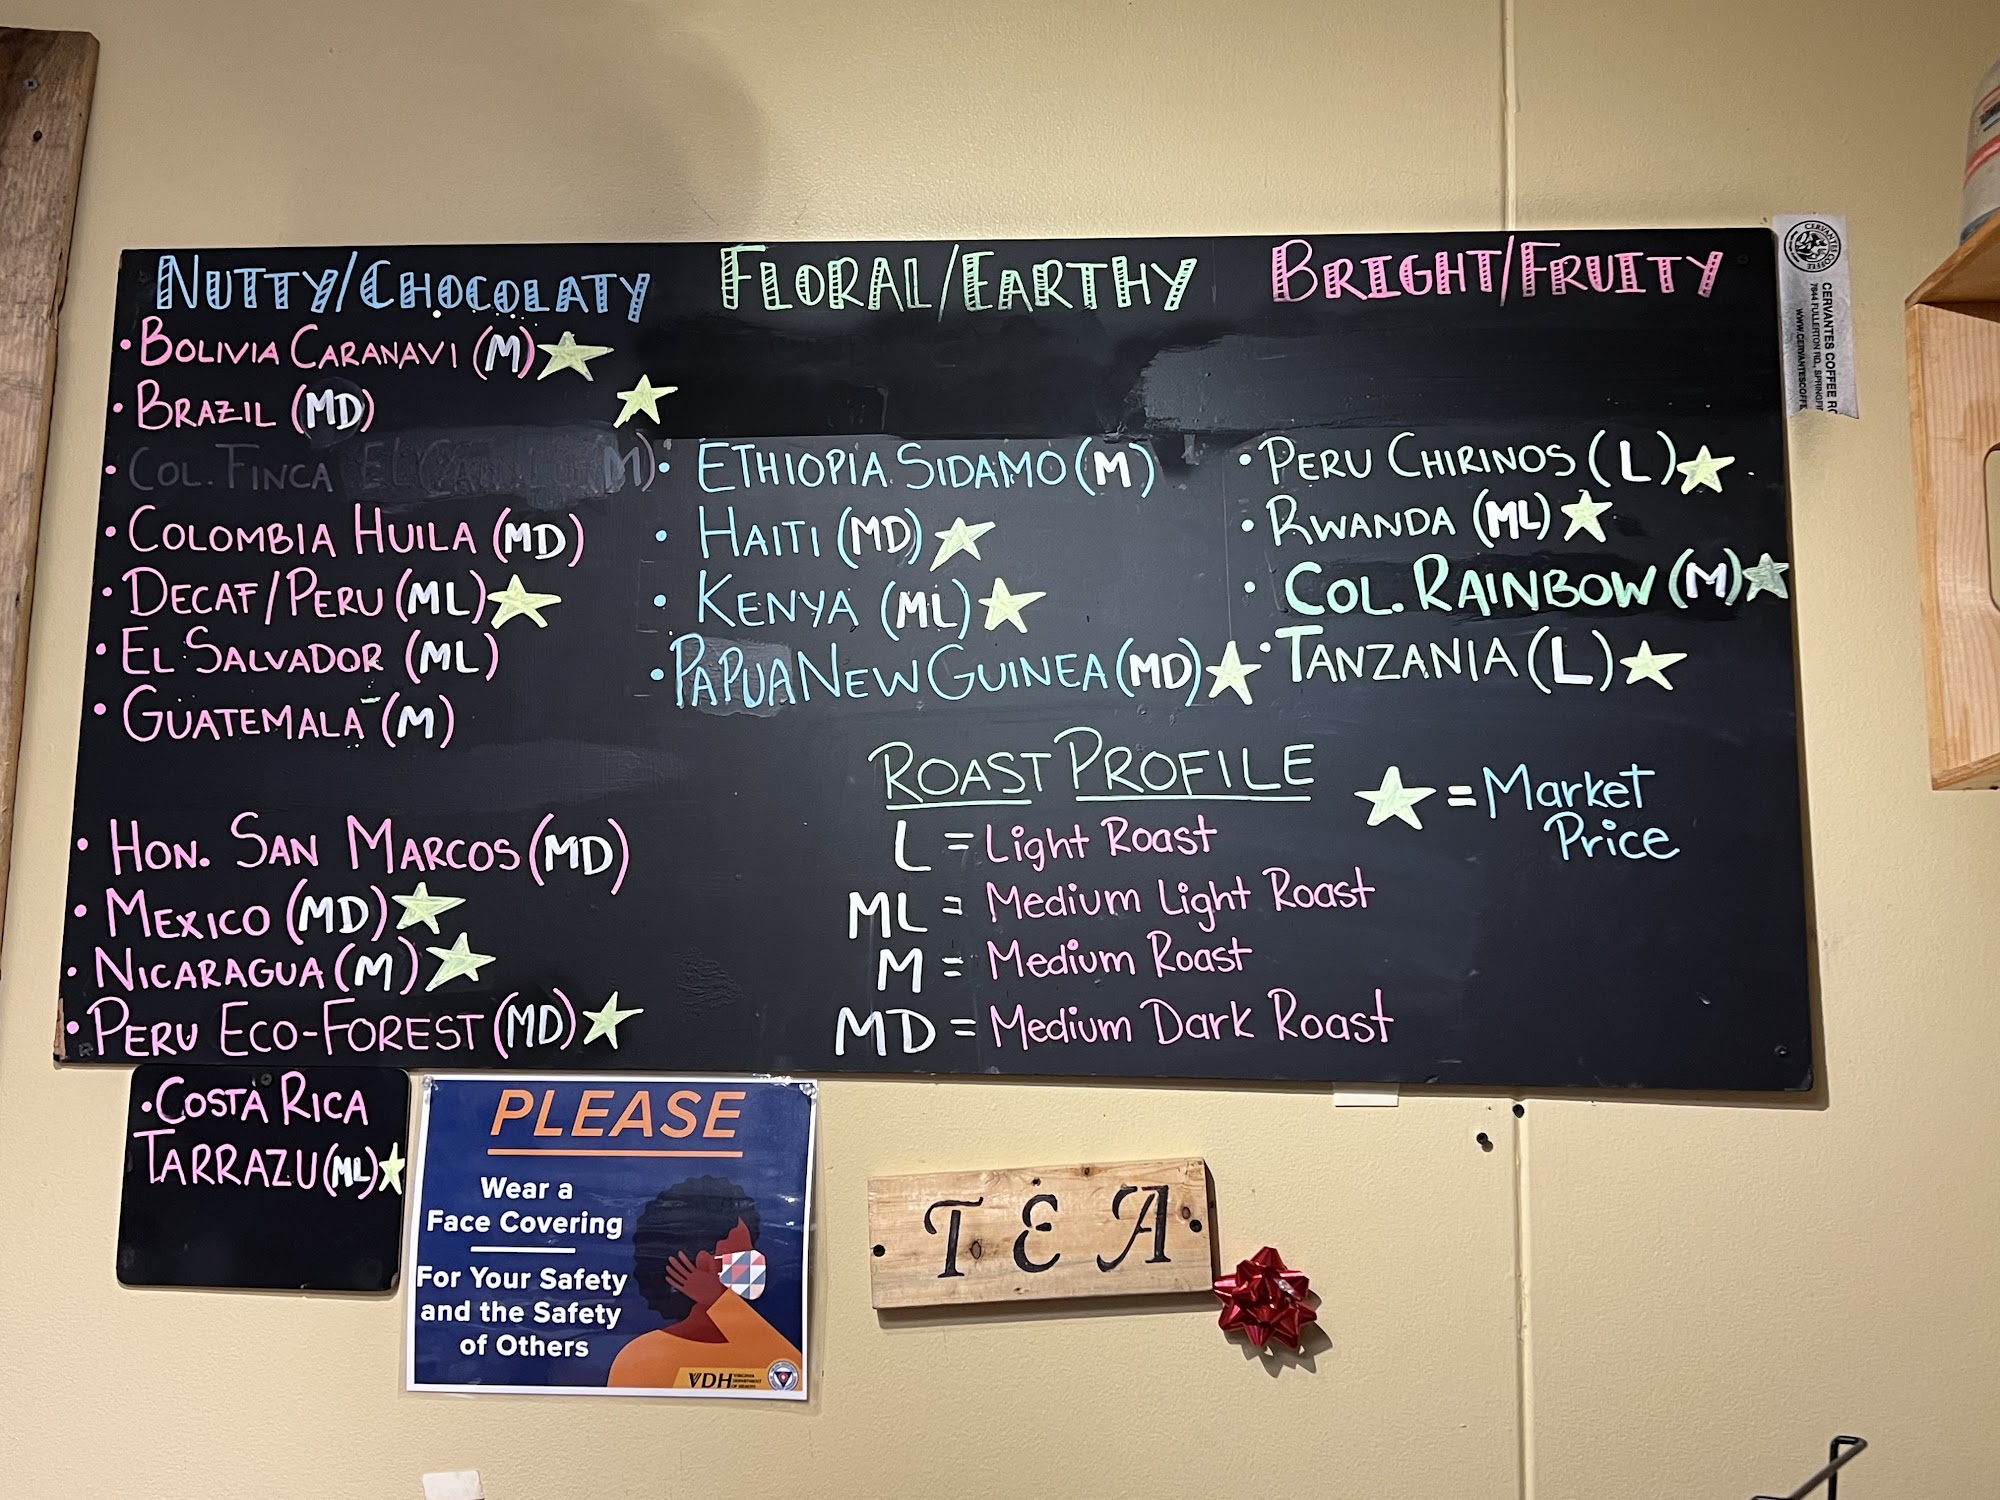 NUTTY/CHOCOLATY
• BOLIVIA CARANAVI (M) ★
• BRAZIL (MD) ★
• COL. FINCA EL (M)
• COLOMBIA HUILA (MD)
• DECAF/PERU (ML) ★
• EL SALVADOR (ML)
• GUATEMALA (M)
• HON. SAN MARCOS (MD)
• MEXICO (MD) ★
• NICARAGUA (M) ★
• PERU ECO-FOREST (MD) ★
• COSTA RICA
TARRAZU (ML) ★
FLORAL/EARTHY
• ETHIOPIA SIDAMO (M)
• HAITI (MD) ★
• KENYA (ML) ★
• PAPUA NEW GUINEA (MD) ★
BRIGHT/FRUITY
• PERU CHIRINOS (L) ★
• RWANDA (ML) ★
• COL. RAINBOW (M) ★
• TANZANIA (L) ★
ROAST PROFILE
L = Light Roast
ML = Medium Light Roast
M = Medium Roast
MD = Medium Dark Roast
★ = Market
Price
CERVANTES COFFEE
CERVANTES COFFEE RO
7644 FULLERTON RD., SPRINGF
WWW.CERVANTESCOFFE
PLEASE
Wear a
Face Covering
For Your Safety
and the Safety
of Others
VDH VIRGINIA
DEPARTMENT
OF HEALTH
TEA